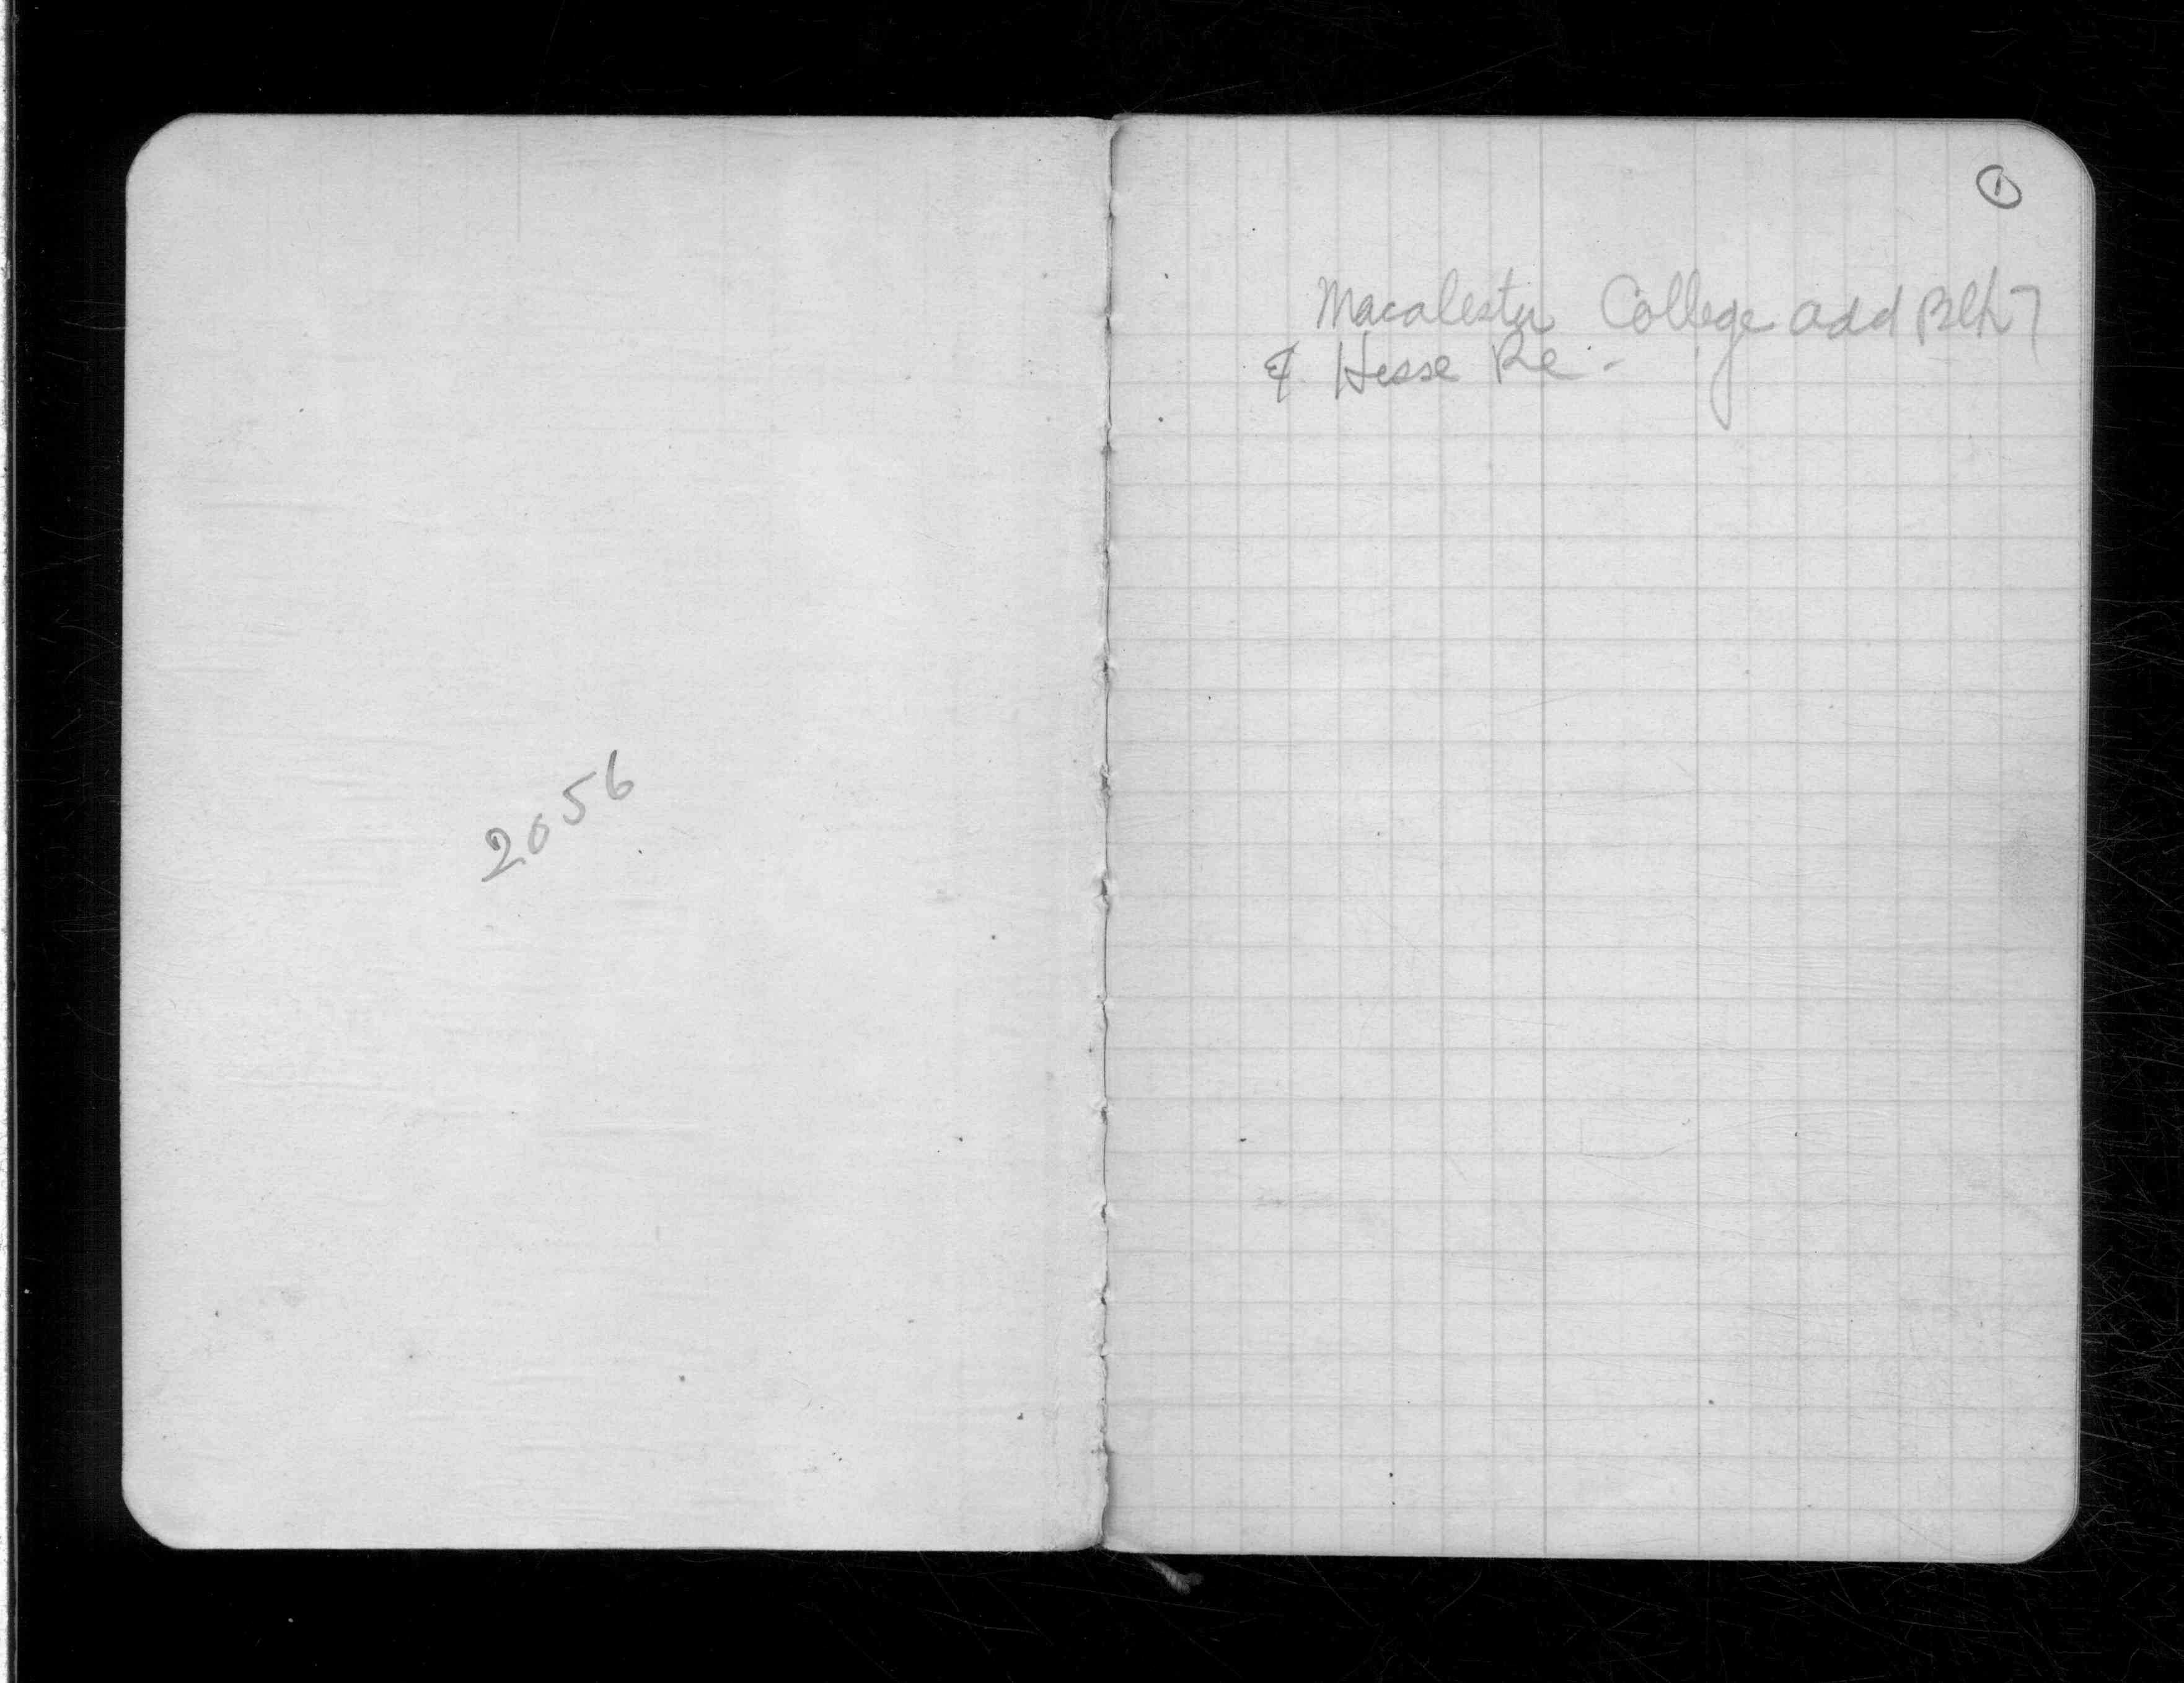 2056
①
Macalester College add Blk 7
& Hesse Re -